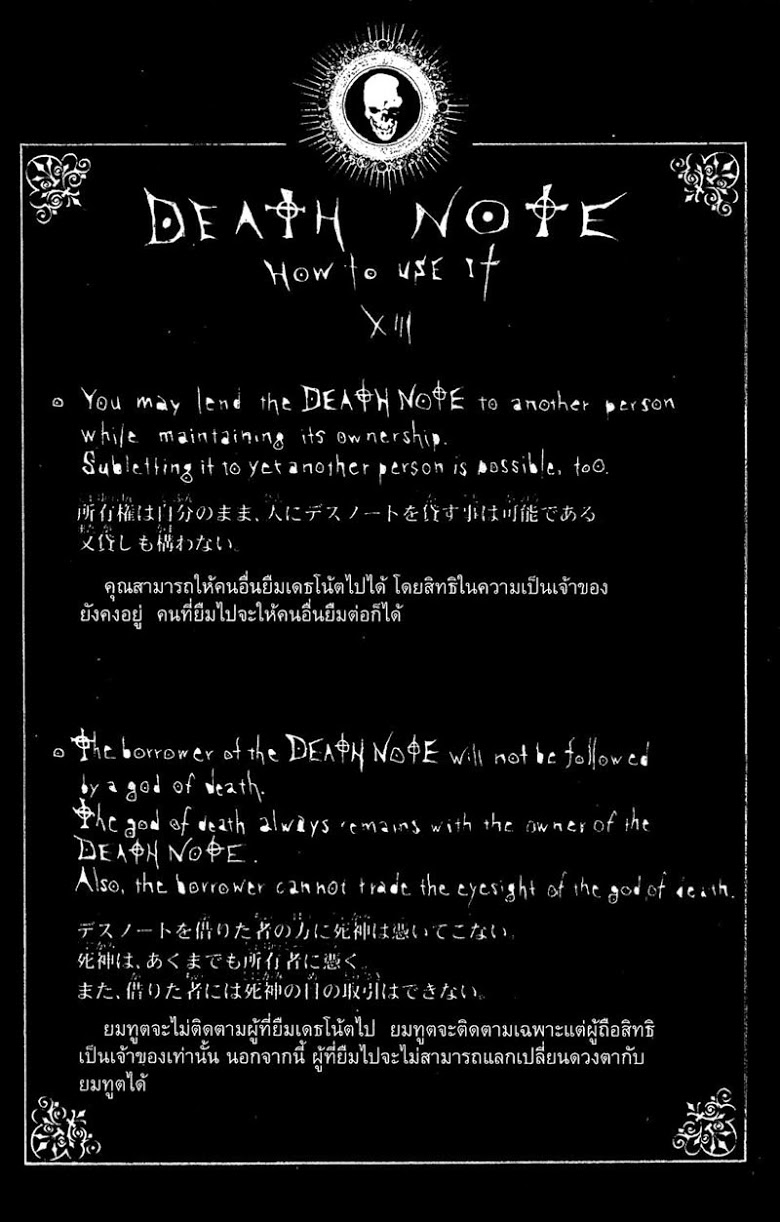 DEATH NOTE
How to use it
XIII
You may lend the DEATH NOTE to another person
while maintaining its ownership.
Subletting it to yet another person is possible, too.
所有権は自分のまま、人にデスノートを貸す事は可能である
又貸しも構わない。
คุณสามารถให้คนอื่นยืมเดธโน้ตไปได้ โดยสิทธิในความเป็นเจ้าของ
ยังคงอยู่ คนที่ยืมไปจะให้คนอื่นยืมต่อก็ได้
The borrower of the DEATH NOTE will not be followed
by a god of death.
The god of death always remains with the owner of the
DEATH NOTE.
Also, the borrower cannot trade the eyesight of the god of death.
デスノートを借りた者の方に死神は憑いてこない。
死神は、あくまでも所有者に憑く。
また、借りた者には死神の目の取引はできない。
ยมทูตจะไม่ติดตามผู้ที่ยืมเดธโน้ตไป ยมทูตจะติดตามเฉพาะแต่ผู้ถือสิทธิ
เป็นเจ้าของเท่านั้น นอกจากนี้ ผู้ที่ยืมไปจะไม่สามารถแลกเปลี่ยนดวงตากับ
ยมทูตได้